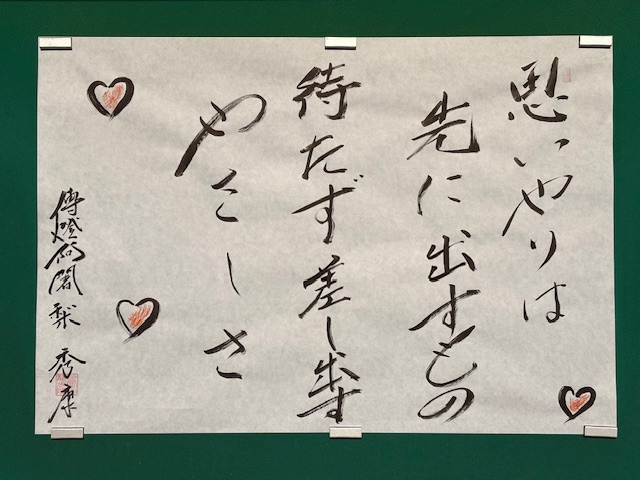 思いやりは
先に出すもの
待たず差し出す
やさしさ
傳燈阿闍梨 秀康